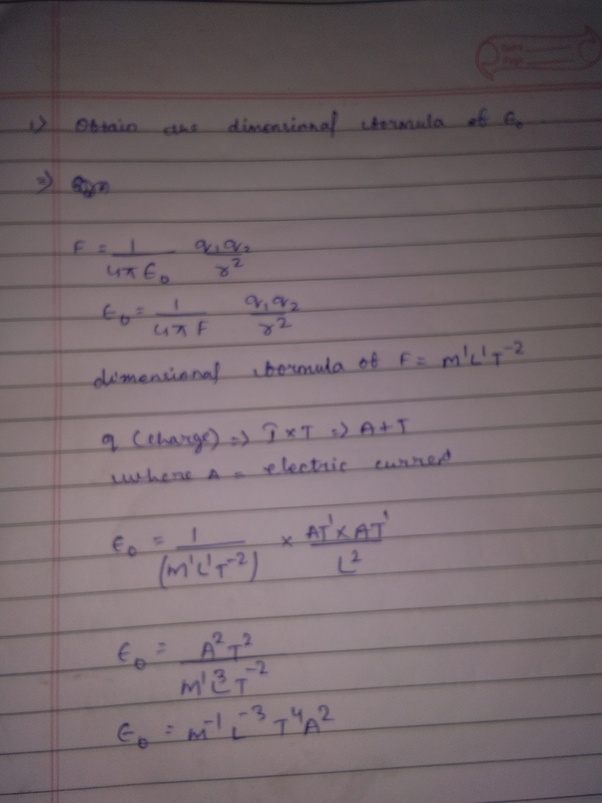 1) Obtain the dimensional formula of ε₀
⇒
F = 1/4πε₀ q₁q₂/r²
ε₀ = 1/4πF q₁q₂/r²
dimensional formula of F = M¹L¹T⁻²
q (charge) ⇒ I×T ⇒ A+T
where A = electric current
ε₀ = 1/(M¹L¹T⁻²) × AT¹×AT¹/L²
ε₀ = A²T²/M¹L³T⁻²
ε₀ = M⁻¹L⁻³T⁴A²